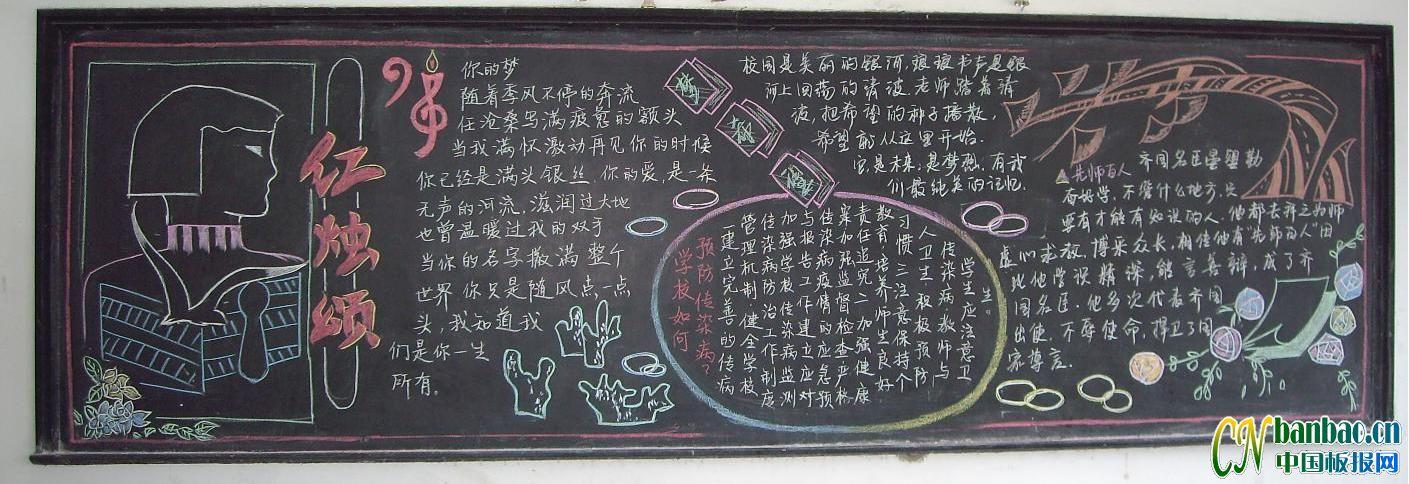 红烛颂
你的梦
随着季风不停的奔流
在沧桑写满疲惫的额头
当我满怀激动再见你的时候
你已经是满头银丝 你的爱,是一条
无声的河流,滋润过大地
也曾温暖过我的双手
当你的名字撒满整个
世界 你只是随风点一点
头,我知道我
们是你一生
所有。
校园是美丽的银河,琅琅书声是银
河上回荡的清波 老师踏着清
波,把希望的种子播散,
希望 从这里开始.
它是未来,是梦想,有我
们最纯美的记忆.
学校如何
预防传染病?
一建立完善的传病
管理机制 健全学校
传染病防治工作制度
加强学校传染病监测
与报告工作建立应对
传染病疫情的应急预
案加强监督检查严格
责任追究二加强健康
教育培养师生良好
习惯三注意保持个
人卫生积极预防
传染病教师与
学生应注意卫
生。
先师百人
齐国名臣晏婴勤
奋好学,不管什么地方,只
要有才能有知识的人,他都去拜之为师
虚心求教,博采众长,相传他有“先师百人”因
此他学识精深,能言善辩,成了齐
国名臣,他多次代表齐国
出使,不辱使命,捍卫了国
家尊言.
CN banbao.cn
中国板报网